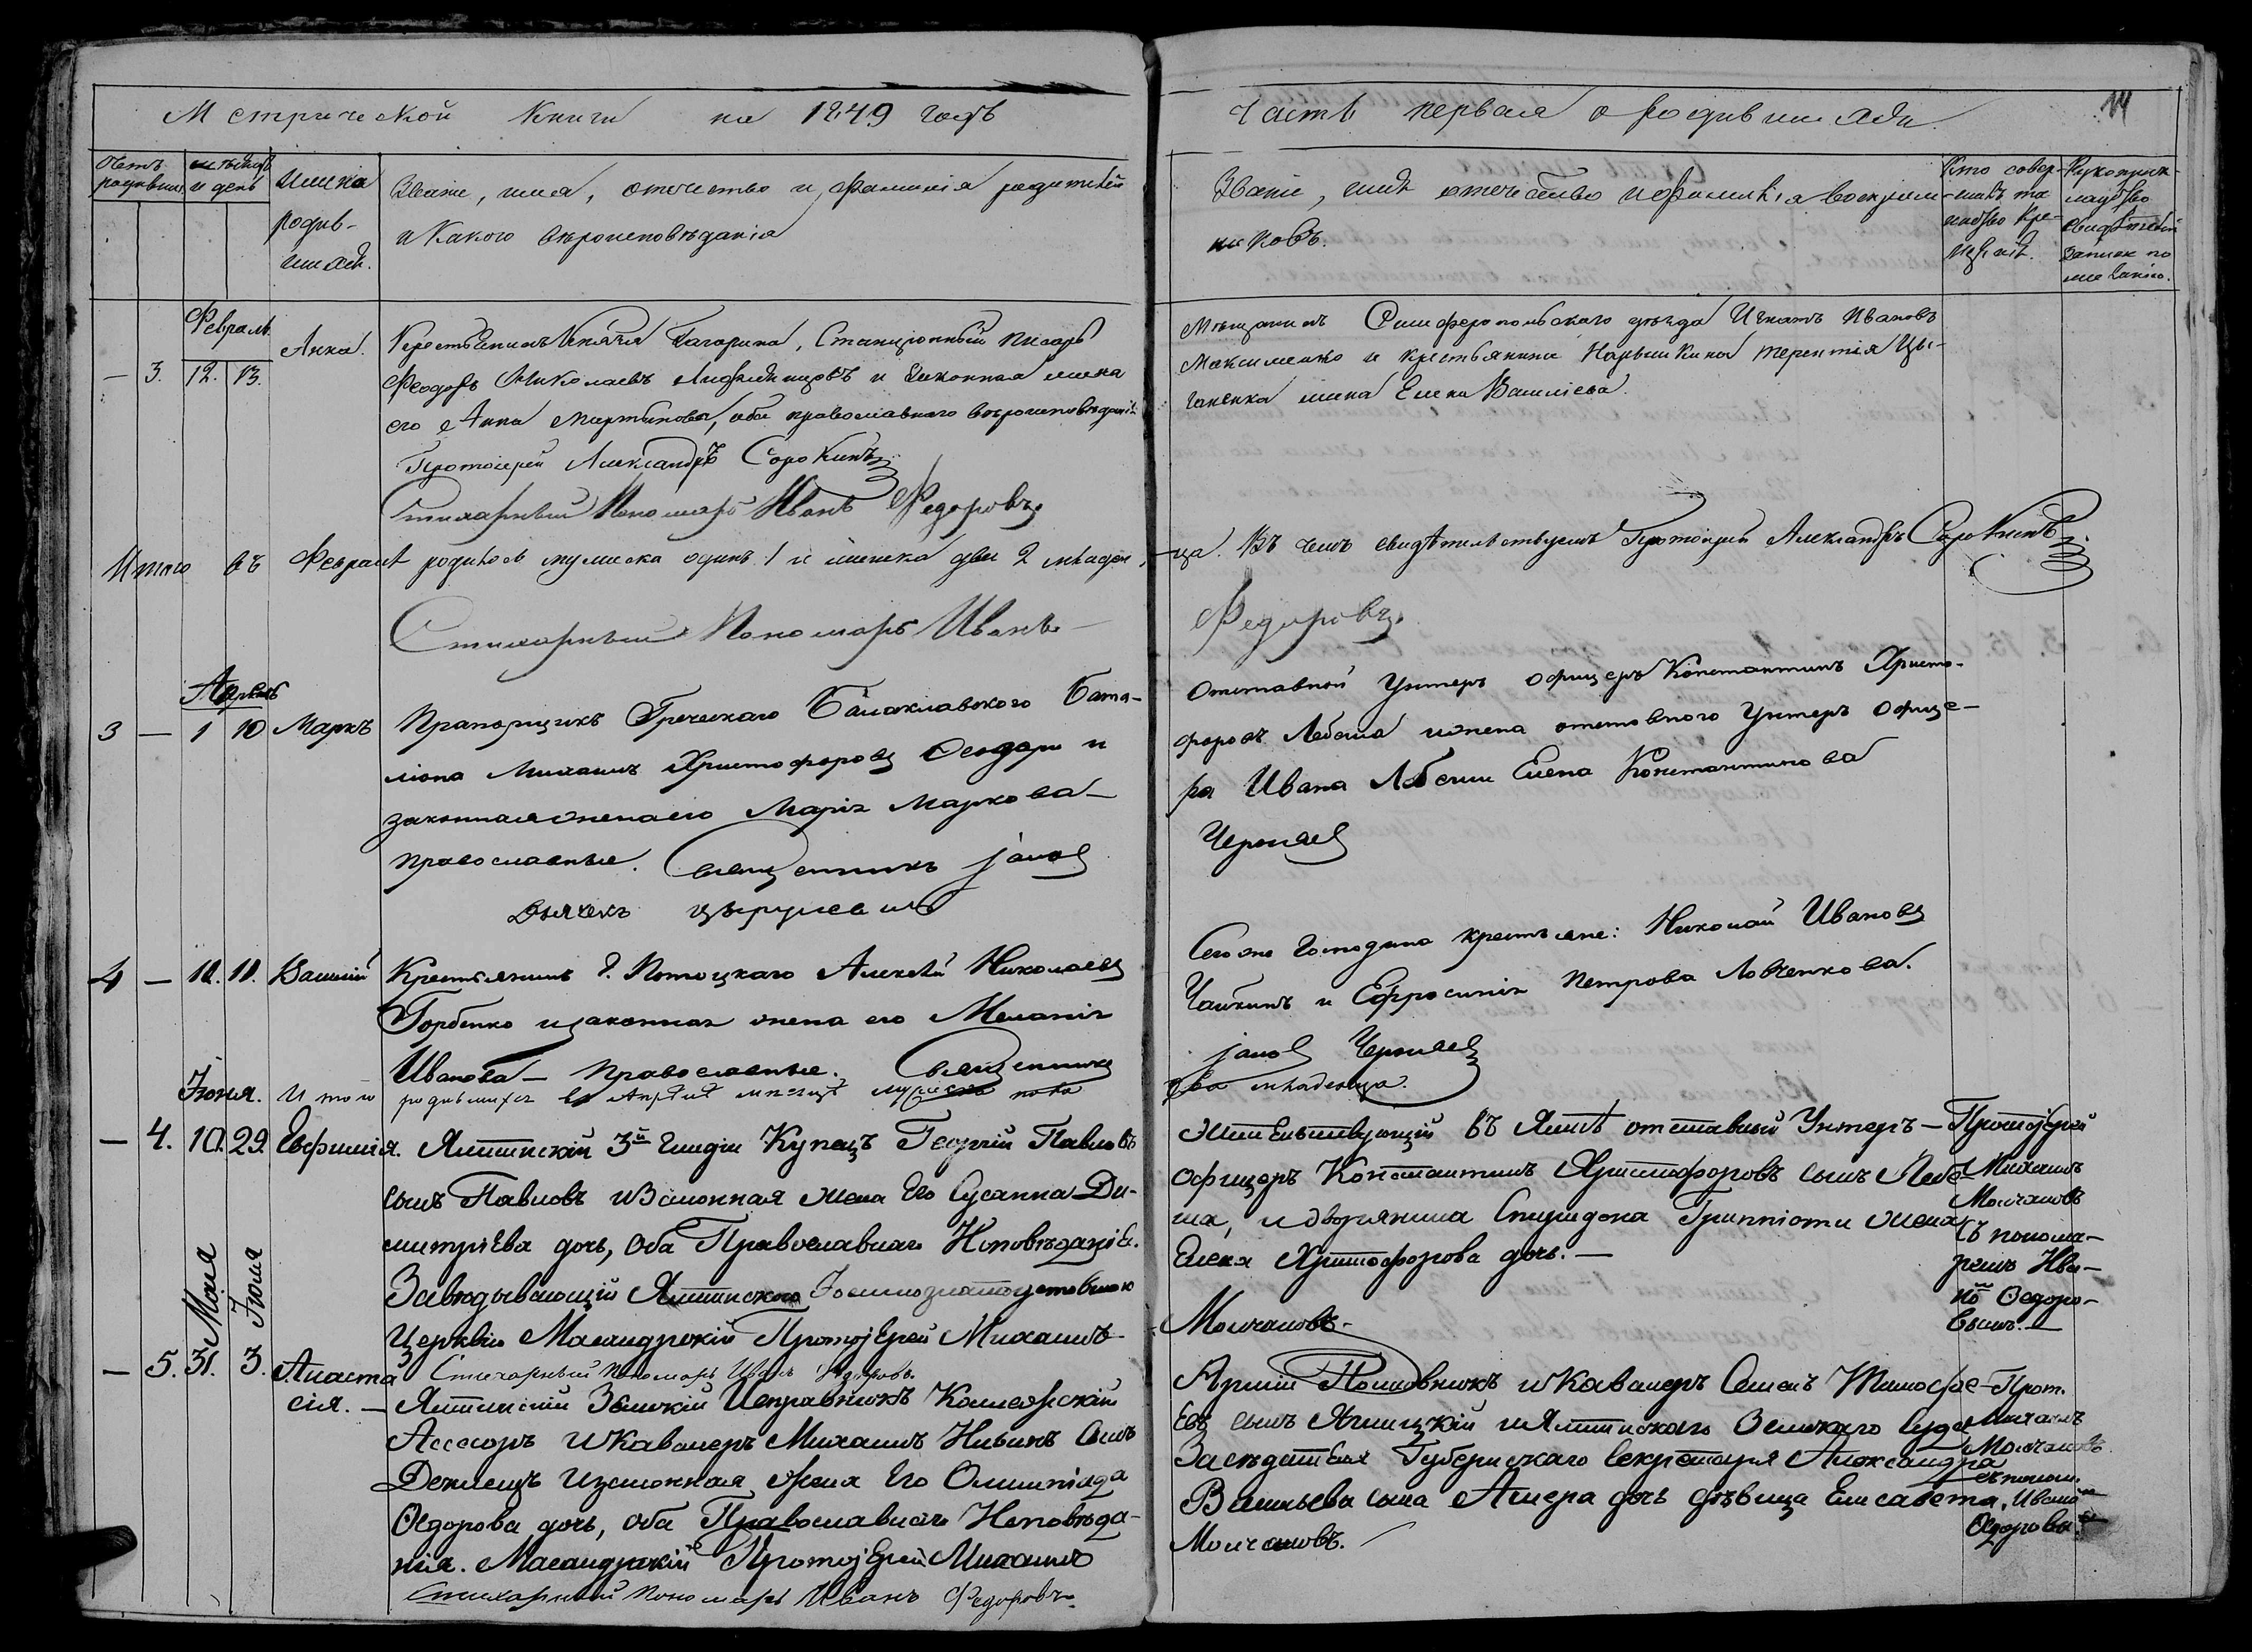 Метрической Книги на 1849 годъ
Счетъ родившихъ
Мѣсяцъ и день
Имена родив-
шихся.
Званіе, имя, отечество и фамилія родителей
и Какого вѣроисповѣданія
Февраль
— 3. 12. 13. Анна.
Крестьянинъ Князя Гагарина, Станціонный писарь
Феодоръ Николаевъ и законная жена
его Анна Мартынова, оба православнаго вѣроисповѣданія
Протоіерей Александръ Сорокинъ
Стихарный Пономарь Иванъ Федоровъ
Итого въ Февралѣ родилось мужеска одинъ 1 и женска два 2 младен-
Стихарный Пономарь Иванъ
Апрѣль
3 — 1 10 Маркъ Прапорщикъ Греческаго Балаклавского Бата-
ліона Михаилъ Христофоровъ Ѳеодори и
законная жена его Марія Маркова —
православные. Священникъ Іаковъ
Дьячекъ
4 — 10. 10. Василій Крестьянинъ Г. Потоцкаго Алексѣй Николаевъ
Горбенко и законная жена его Меланія
Иванова — православные. Священникъ
Итого родившихся въ Апрѣлѣ мѣсяцѣ мужеска пола
Іюня.
— 4. 10. 29. Евфимія. Ялтинскій 3й Гильдіи Купецъ Георгій Павловъ
сынъ Павловъ и Законная жена Его Сусанна Ди-
митріЕва дочь, оба Православнаго Исповѣданія.
Завѣдывающій Ялтинскою Іоанно
Церквію Масандрскій ПротоіЕрей Михаилъ
Стихарный Пономарь Иванъ Федоровъ.
Мая
Іюня
— 5. 31. 3. Анаста
сія. — Ялтинскій Земскій Исправникъ Коллежскій
Ассесоръ и Кавалеръ Михаилъ Ниловъ сынъ
и законная жена Его Олимпіада
Ѳедорова дочь, оба Православнаго Исповѣда-
нія. Масандрскій ПротоіЕрей Михаилъ
Стихарный Пономарь Иванъ Федоровъ.
часть первая о родившихся.
14
Званіе, имя отечество и фамилія воспріем-
никовъ.
Кто совер-
шилъ та
инство Кре-
щенія.
Рукоприк-
ладство
свидѣтелей
записи по
желанію.
Мѣщанинъ Симферопольскаго уѣзда Игнатъ Ивановъ
Максименко и крестьянина Нарышкина Терентія Цы-
ганенка жена Елена Василіева.
ца. Въ чемъ свидѣтельствуемъ Протоіерей Александръ Сорокинъ
Федоровъ.
Отставной Унтеръ офицеръ Константинъ Христо-
форовъ и жена отставного Унтеръ Офице-
ра Ивана Елена Константинова
Черняев
Сего же Господина крестьяне: Николай Ивановъ
Чайкинъ и Ефросинія Петрова Ловченкова.
Іаковъ Черняев
два младенца.
Жительствующій въ Ялтѣ отставный Унтеръ —
офицеръ Константинъ Христофоровъ сынъ
и дворянина Спиридона жена
Елена Христофорова дочь. —
Молчановъ.
ПротоіЕрей
Михаилъ
Молчановъ
съ понома-
ремъ Ива-
номъ Ѳедоро-
вымъ. —
Арміи Полковникъ и Кавалеръ Семенъ Тимофе-
Евъ сынъ и Ялтинскаго Земскаго Суда
ЗасѣдатЕля Губернскаго Секретаря Александра
Васильева сына дочь дѣвица Елисавета.
Молчановъ.
Прот.
Михаилъ
Молчановъ
съ поном.
Ивано
Ѳедоровы